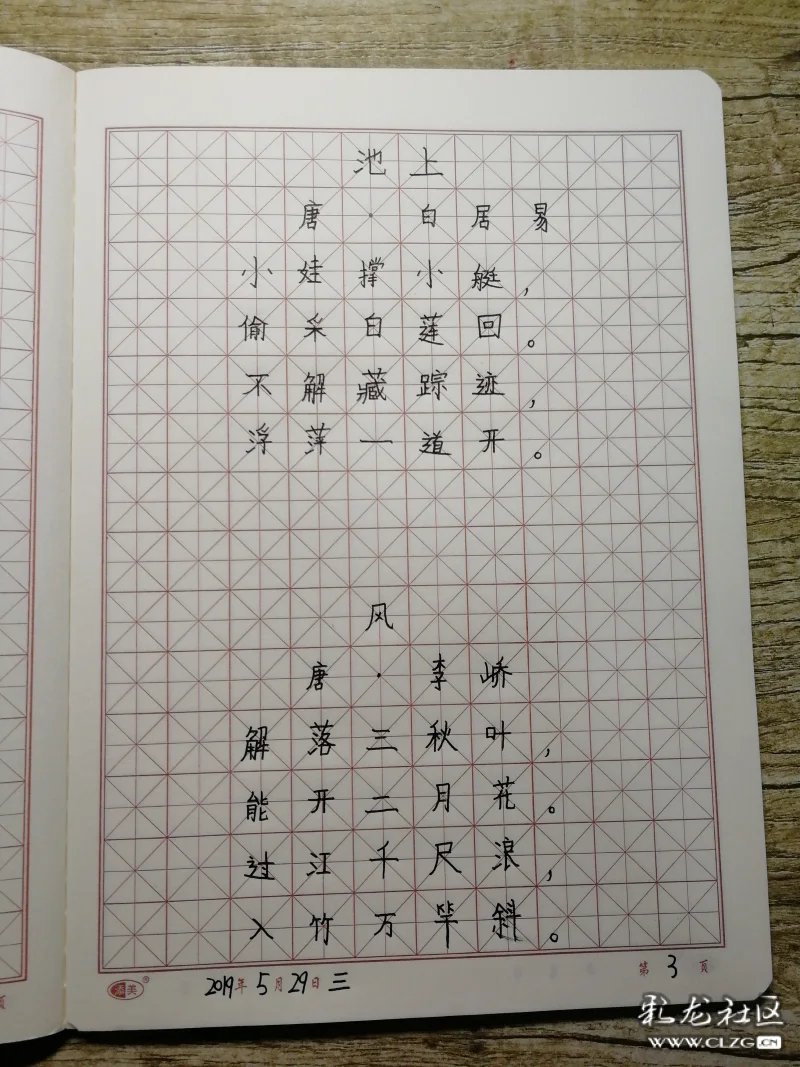 池上
唐·白居易
小娃撑小艇，
偷采白莲回。
不解藏踪迹，
浮萍一道开。
风
唐·李峤
解落三秋叶，
能开二月花。
过江千尺浪，
入竹万竿斜。
2019年5月29日三
第3页
页
彩龙社区
www.CLZG.CN